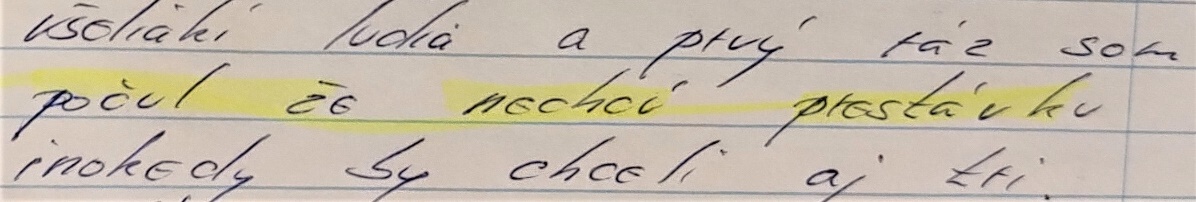 všeliakí ludia a prvý ráz som
počul že nechcú prestávku
inokedy by chceli aj tri.